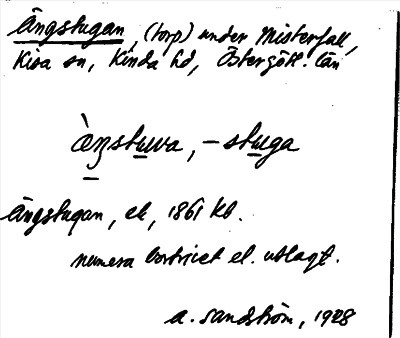 Ängstugan, (torp) under Misterfall,
Kisa sn, Kinda hd, Östergötl. län
àŋstuwa, -stuga
Ängstugan, ek, 1861 kb.
numera bortriet el. utlagt.
A. Sandström, 1928